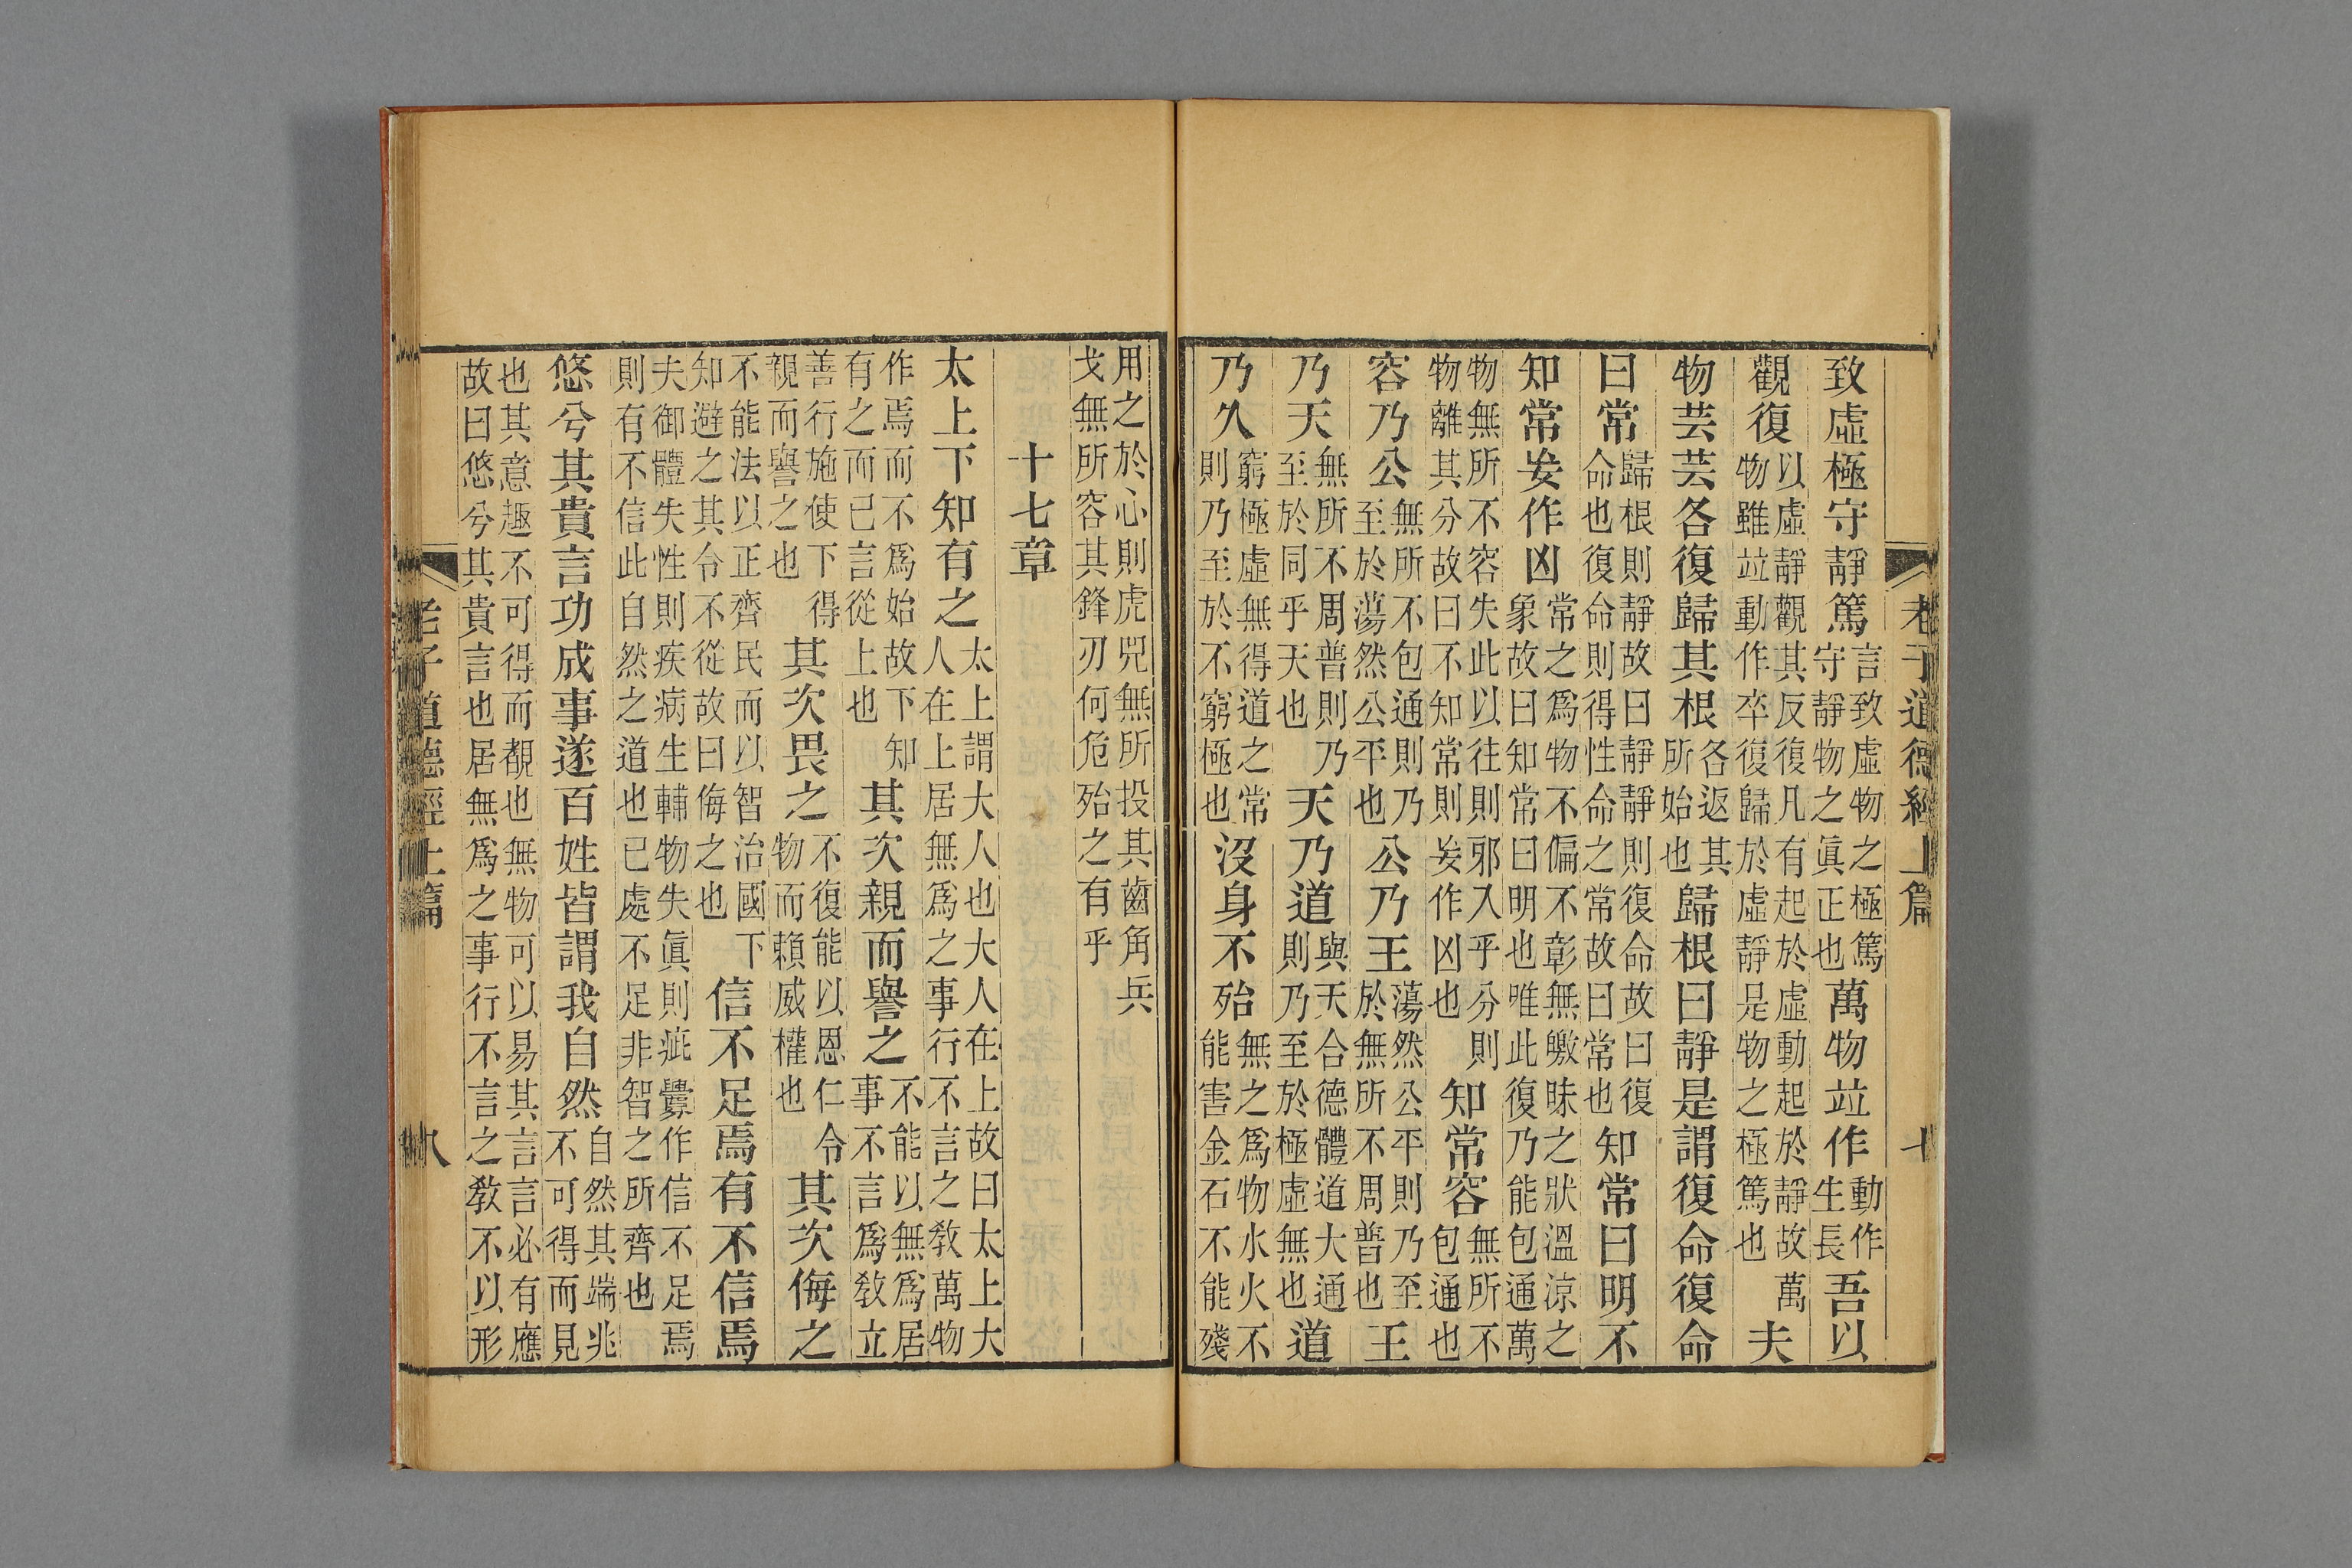 老子道德經上篇 七
致虛極守靜篤言致虛物之極篤守靜物之眞正也萬物竝作動作生長吾以
觀復以虛靜觀其反復凡有起於虛動起於靜故萬物雖竝動作卒復歸於虛靜是物之極篤也夫
物芸芸各復歸其根各返其所始也歸根曰靜是謂復命復命
曰常歸根則靜故曰靜靜則復命故曰復命也復命則得性命之常故曰常也知常曰明不
知常妄作凶常之爲物不偏不彰無皦昧之狀溫涼之象故曰知常曰明也唯此復乃能包通萬
物無所不容失此以往則邪入乎分則物離其分故曰不知常則妄作凶也知常容無所不包通也
容乃公無所不包通則乃至於蕩然公平也公乃王蕩然公平則乃至於無所不周普也王
乃天無所不周普則乃至於同乎天也天乃道與天合德體道大通則乃至於極虛無也道
乃久窮極虛無得道之常則乃至於不窮極也沒身不殆無之爲物水火不能害金石不能殘
用之於心則虎兕無所投其齒角兵戈無所容其鋒刃何危殆之有乎
十七章
太上下知有之太上謂大人也大人在上故曰太上大人在上居無爲之事行不言之敎萬物
作焉而不爲始故下知有之而已言從上也其次親而譽之不能以無爲居事不言爲敎立
善行施使下得親而譽之也其次畏之不復能以恩仁令物而賴威權也其次侮之
不能法以正齊民而以智治國下知避之其令不從故曰侮之也信不足焉有不信焉
夫御體失性則疾病生輔物失眞則疵釁作信不足焉則有不信此自然之道也已處不足非智之所齊也
悠兮其貴言功成事遂百姓皆謂我自然自然其端兆不可得而見
也其意趣不可得而覩也無物可以易其言言必有應故曰悠兮其貴言也居無爲之事行不言之敎不以形
老子道德經上篇 八